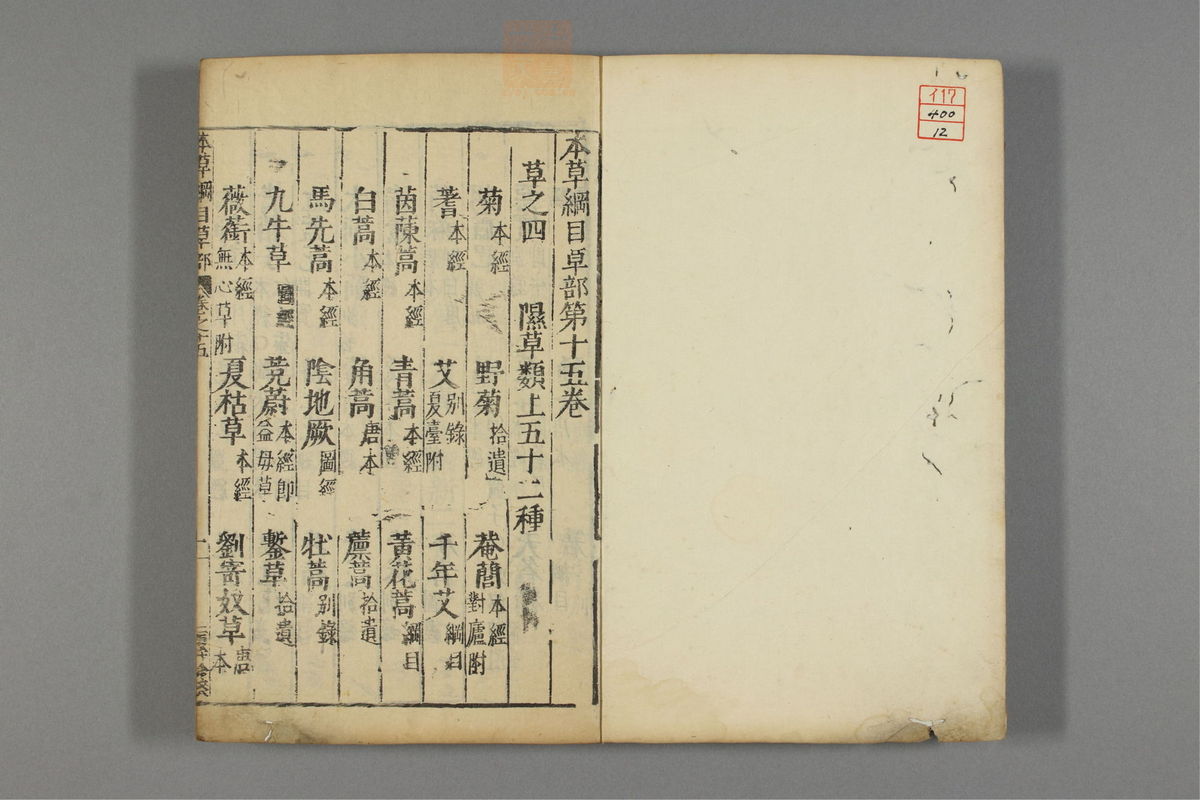 イ17
400
12
本草綱目草部第十五卷
草之四 隰草類上五十二種
菊 本經 野菊 拾遺 菴䕡 本經 對廬附
蓍 本經 艾 别錄 夏臺附 千年艾 綱目
茵蔯蒿 本經 青蒿 本經 黃花蒿 綱目
白蒿 本經 角蒿 唐本 䕲蒿 拾遺
馬先蒿 本經 陰地厥 圖經 牡蒿 别錄
九牛草 圖經 茺蔚 本經即益母草 鏨草 拾遺
薇蘅 本經 無心草附 夏枯草 本經 劉寄奴草 唐本
本草綱目草部 卷之十五 一